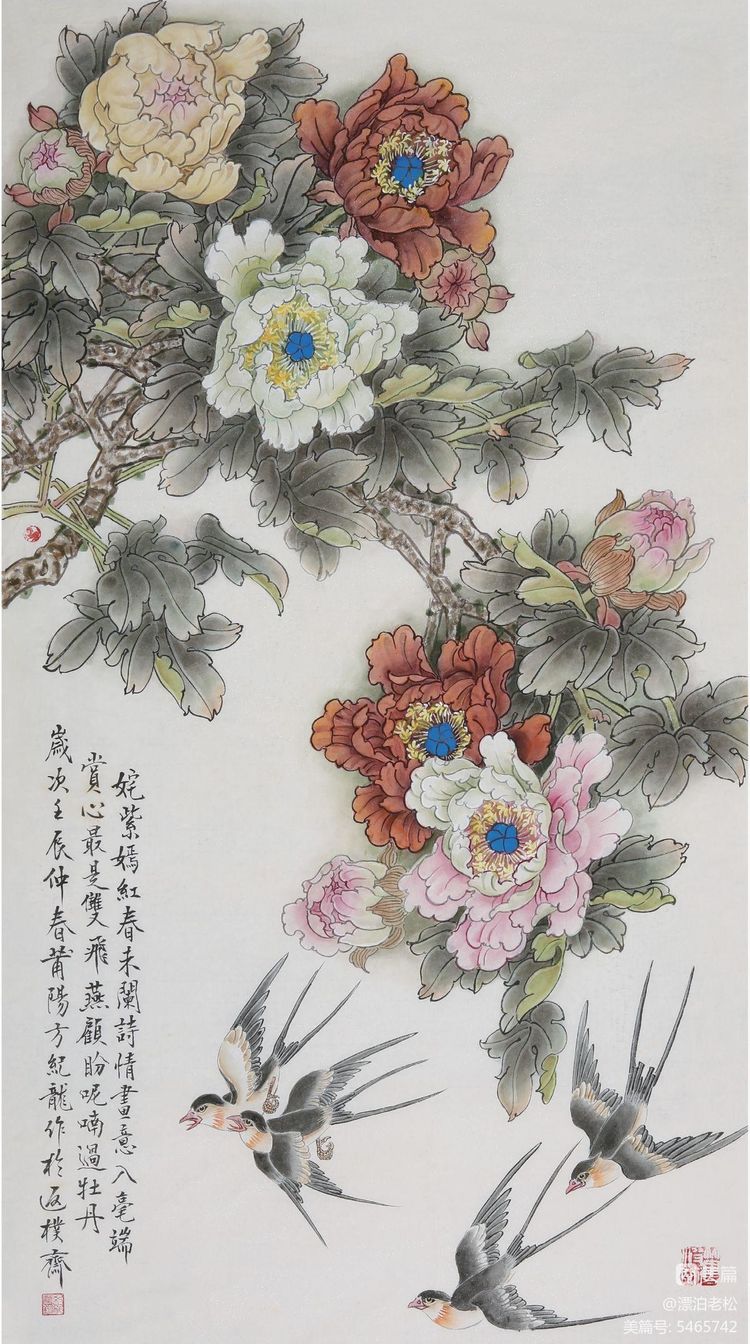 姹紫嫣紅春未闌詩情畫意入毫端
賞心最是雙飛燕顧盼呢喃過牡丹
歲次壬辰仲春莆陽方紀龍作於返樸齋
美篇
@漂泊老松
美篇号: 5465742